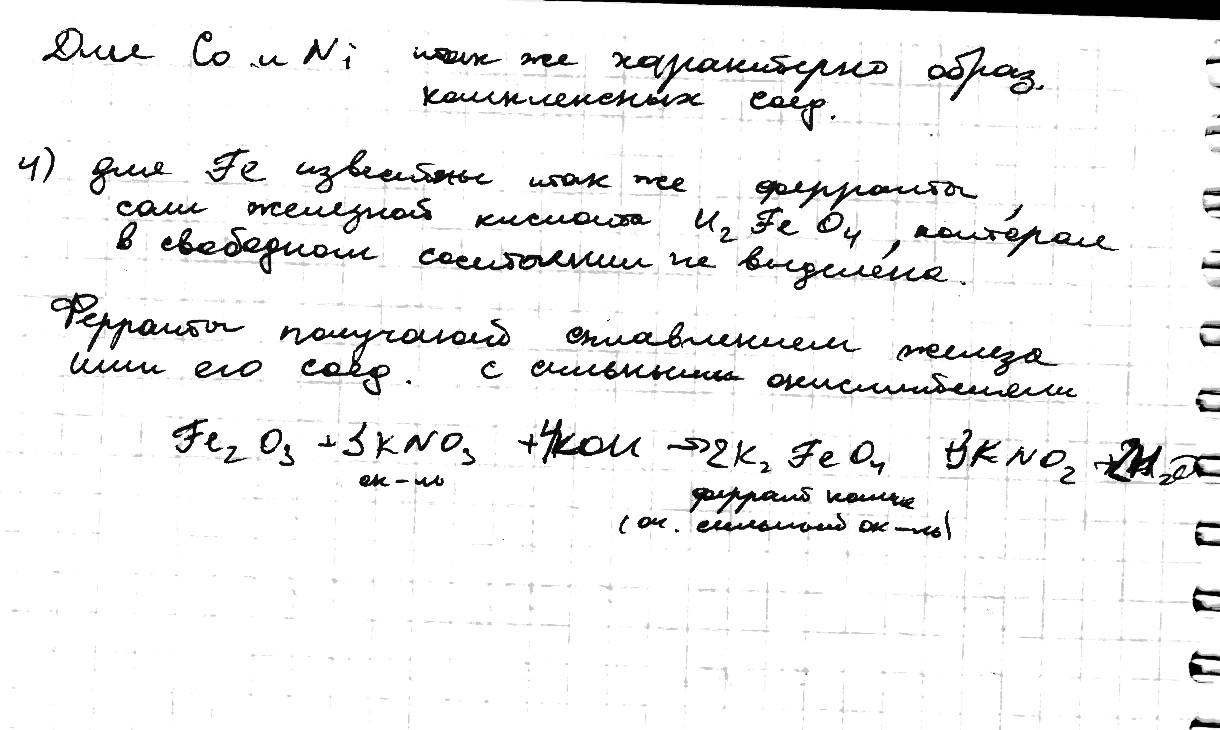 Для Co и Ni так же характерно образ.
комплексных соед.
4) для Fe известны так же ферраты,
соли железной кислота H2FeO4, которая
в свободном состоянии не выделена.
Ферраты получают сплавлением железа
или его соед. с сильными окислителями
Fe2O3 + 3KNO3 + 4KOH → 2K2FeO4 + 3KNO2 + 2H2O
ок-ль
феррат калия
(оч. сильный ок-ль)